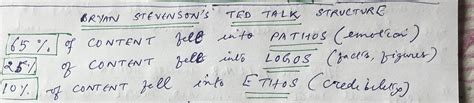 BRYAN STEVENSON'S TED TALK STRUCTURE
65% of CONTENT fell into PATHOS (emotion)
25% of CONTENT fell into LOGOS (facts, figures)
10% of CONTENT fell into ETHOS (credibility)